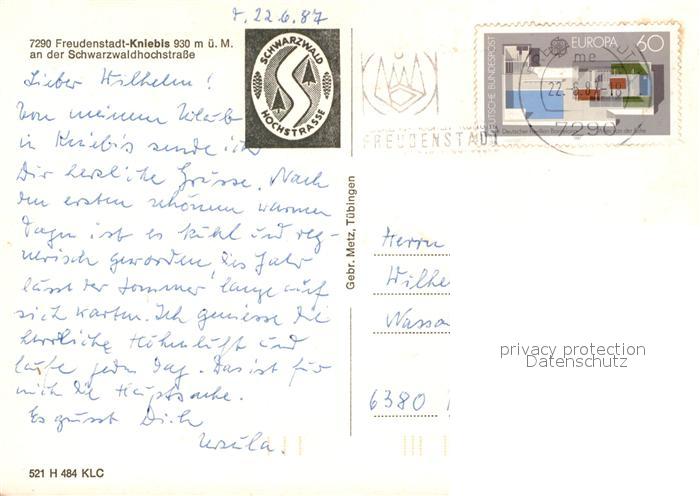 d. 22.6.87
7290 Freudenstadt-Kniebis 930 m ü. M.
an der Schwarzwaldhochstraße
SCHWARZWALD
HOCHSTRASSE
Lieber Wilhelm!
Von meinem Urlaub
in Kniebis sende ich
Dir herzliche Grüsse. Nach
den ersten schönen warmen
Tagen ist es kühl und reg-
nerisch geworden, dies Jahr
lässt der Sommer lange auf
sich warten. Ich geniesse die
herrliche Höhenluft und
laufe jeden Tag. Das ist für
mich die Hauptsache.
Es grüsst Dich
Ursula.
521 H 484 KLC
Gebr. Metz, Tübingen
FREUDENSTADT
DEUTSCHE BUNDESPOST
EUROPA 60
Deutscher Pavillon
7290
Herrn
Wilhe
Wassa
6380
privacy protection
Datenschutz